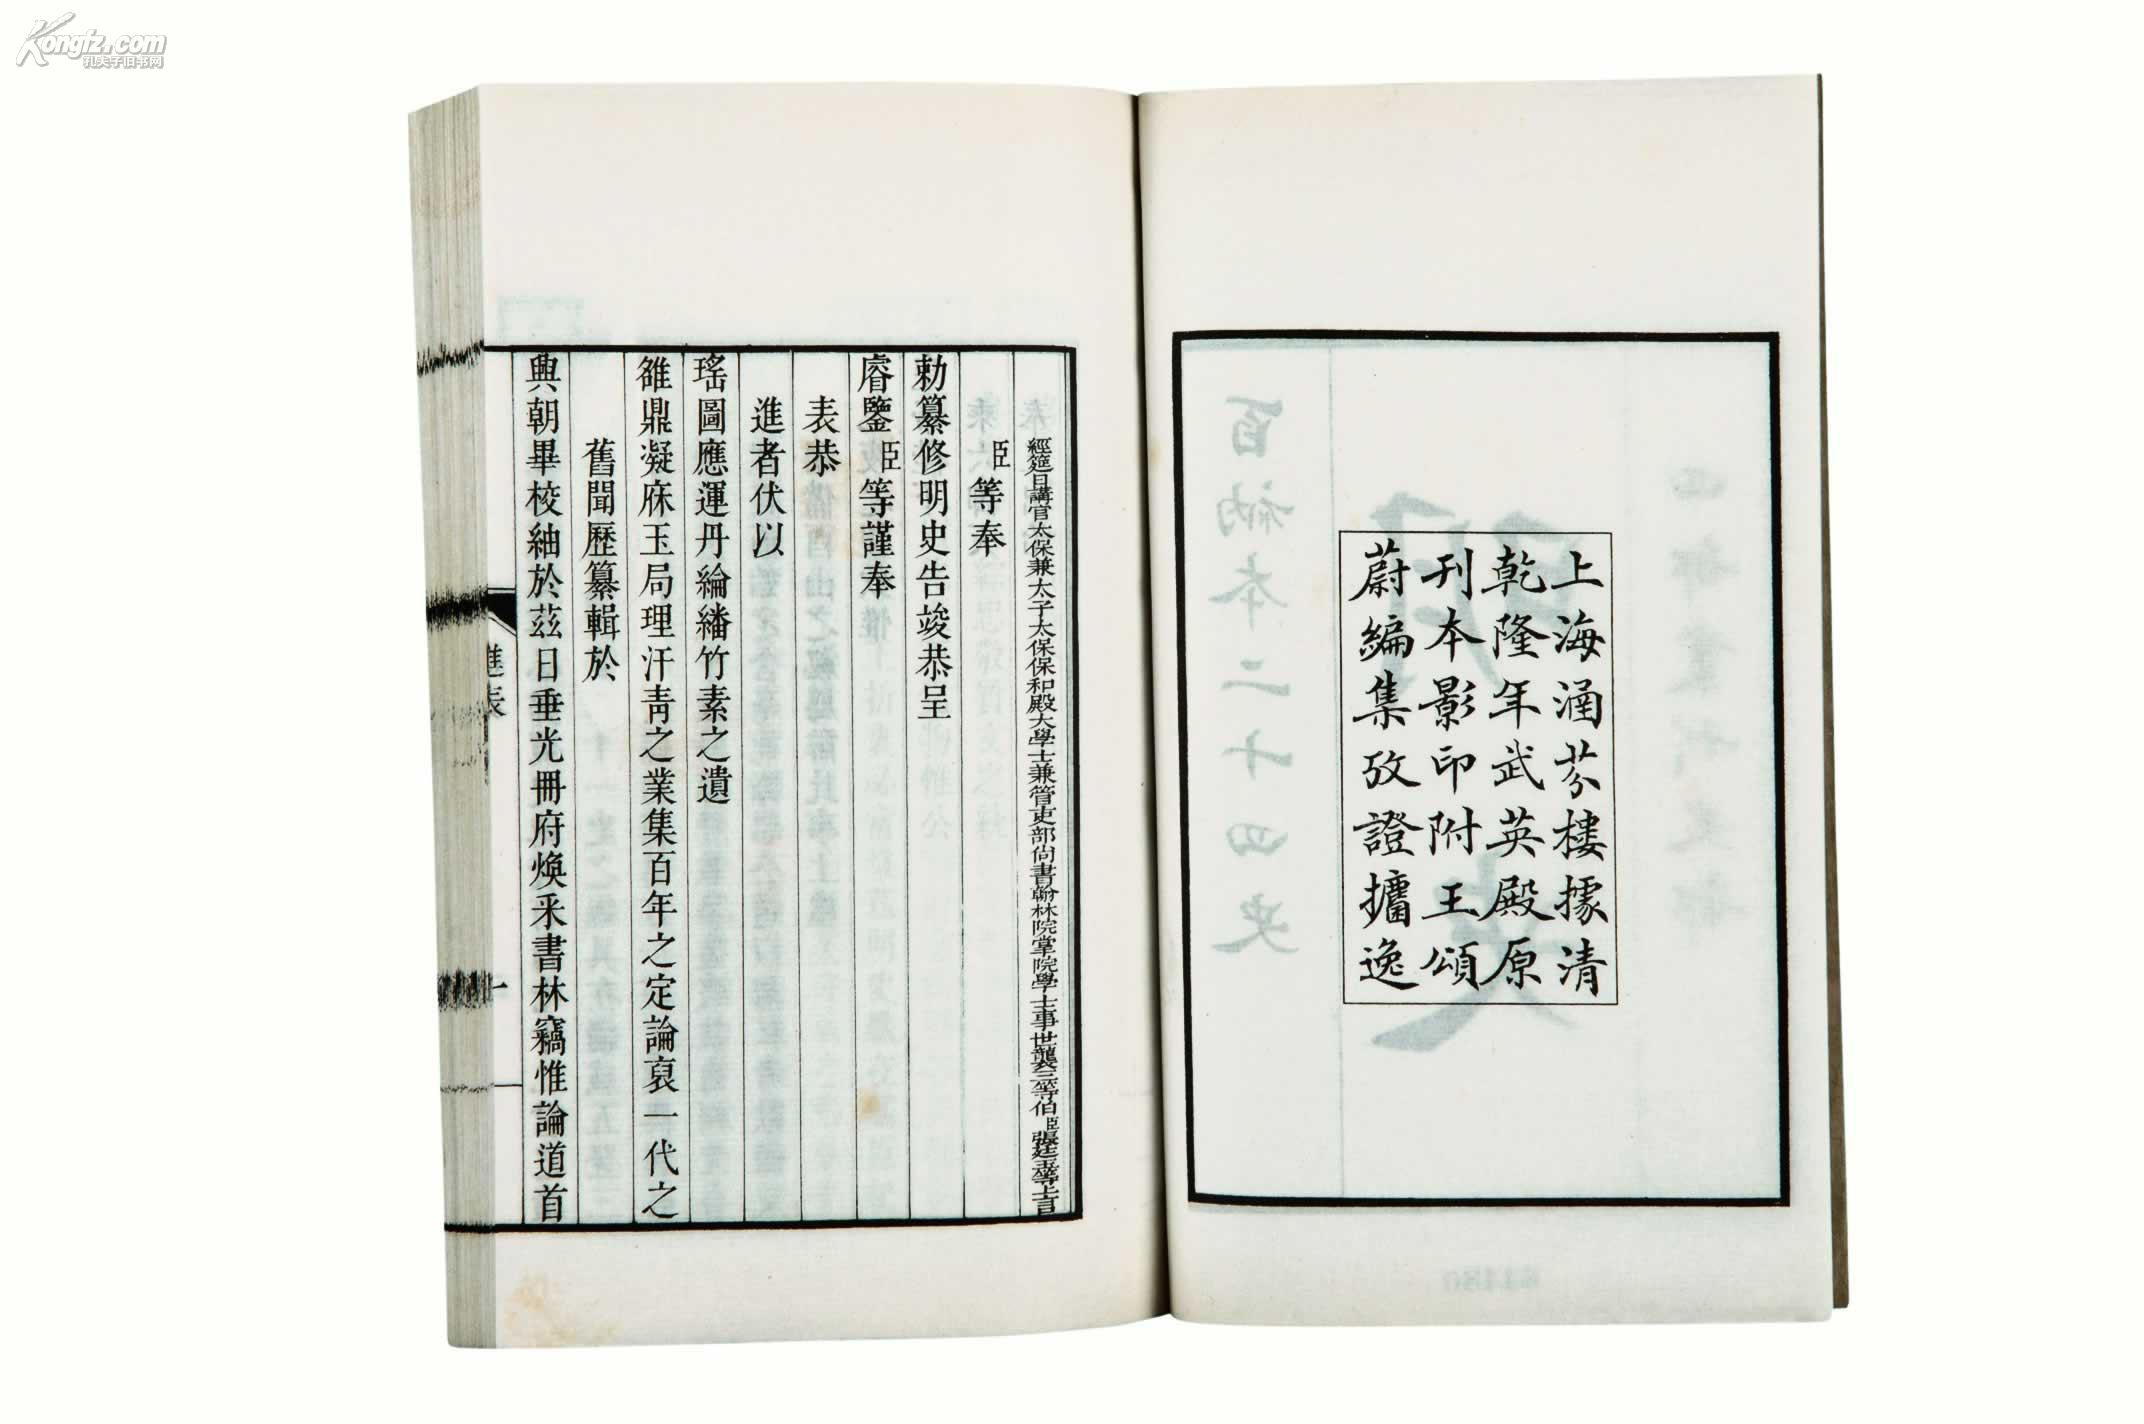 Kongfz.com
孔夫子旧书网
上海涵芬樓據清
乾隆年武英殿原
刊本影印附王頌
蔚編集攷證攟逸
經筵日講官太保兼太子太保保和殿大學士兼管吏部尙書翰林院掌院學士事世襲三等伯臣張廷玉等上言
臣等奉
勅纂修明史告竣恭呈
睿鑒臣等謹奉
表恭
進者伏以
瑤圖應運丹綸繙竹素之遺
雒鼎凝庥玉局理汗靑之業集百年之定論裒一代之
舊聞歷纂輯於
興朝畢校紬於茲日垂光冊府煥采書林竊惟論道首
進表
一
百衲本二十四史
明史